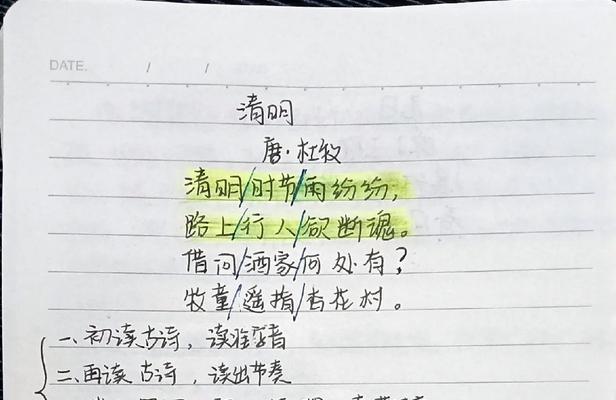 DATE. / /
清明
唐·杜牧
清明/时节/雨纷纷,
路上/行人/欲断魂。
借问/酒家/何处有?
牧童/遥指/杏花村。
一、初读古诗,读准字音
二、再读古诗,读出节奏